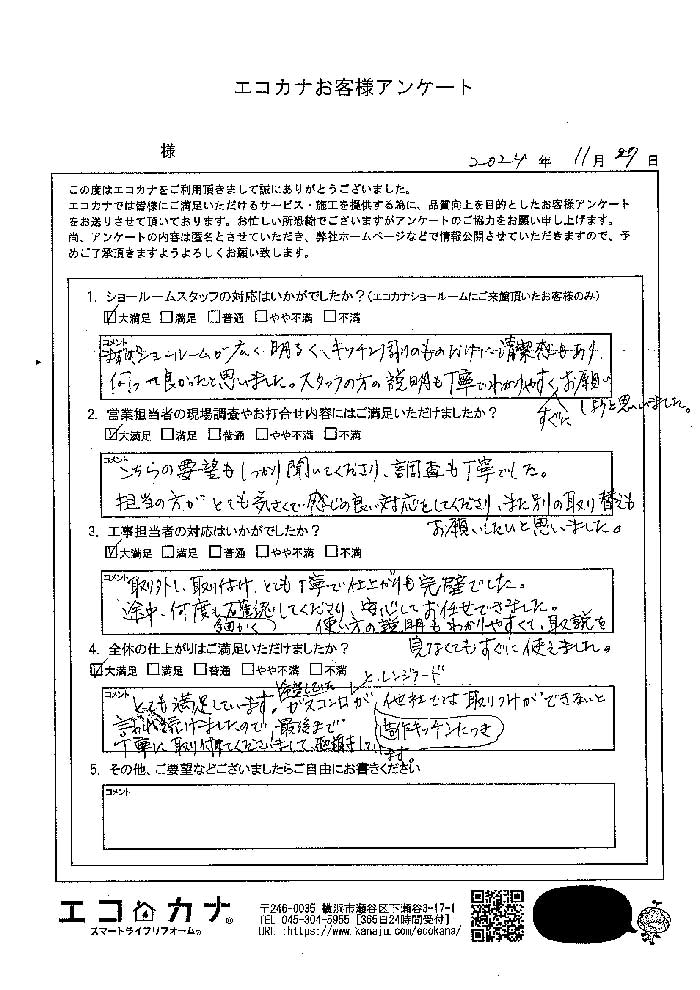 エコカナお客様アンケート
様
2024 年 11 月 27 日
この度はエコカナをご利用頂きまして誠にありがとうございました。
エコカナでは皆様にご満足いただけるサービス・施工を提供する為に、品質向上を目的としたお客様アンケート
をお送りさせて頂いております。お忙しい所恐縮でございますがアンケートのご協力をお願い申し上げます。
尚、アンケートの内容は匿名とさせていただき、弊社ホームページなどで情報公開させていただきますので、予
めご了承頂きますようよろしくお願い致します。
1. ショールームスタッフの対応はいかがでしたか？(エコカナショールームにご来館頂いたお客様のみ)
☑大満足 □満足 □普通 □やや不満 □不満
コメント
ショールームが広く明るく、キッチン周りのものだけに清潔感もあり
行って良かったと思いました。スタッフの方の説明も丁寧でわかりやすく、お願い
すぐに しようと思いました。
2. 営業担当者の現場調査やお打合せ内容にはご満足いただけましたか？
☑大満足 □満足 □普通 □やや不満 □不満
コメント
こちらの要望もしっかり聞いてくださり、調査も丁寧でした。
担当の方がとても気さくで感じの良い対応をしてくださり、また別の取り替えも
お願いしたいと思いました。
3. 工事担当者の対応はいかがでしたか？
☑大満足 □満足 □普通 □やや不満 □不満
コメント
取り外し、取り付け、とても丁寧で仕上がりも完璧でした。
途中、何度も確認してくださり、安心してお任せできました。
細かく 使い方の説明もわかりやすくて、取説を
見なくてもすぐに使えました。
4. 全体の仕上がりはご満足いただけましたか？
☑大満足 □満足 □普通 □やや不満 □不満
コメント
とても満足しています。ガスコンロが、他社では取り付けができないと
と、レンジフード
ましたので、最後まで
造作キッチンにつき
丁寧に取り付けてくださいまして、ます。
5. その他、ご要望などございましたらご自由にお書きください
コメント
エコカナ®
スマートライフリフォーム®
〒246-0035 横浜市瀬谷区下瀬谷3-17-1
TEL 045-304-5955 [365日24時間受付]
URL :https://www.kanaju.com/ecokana/